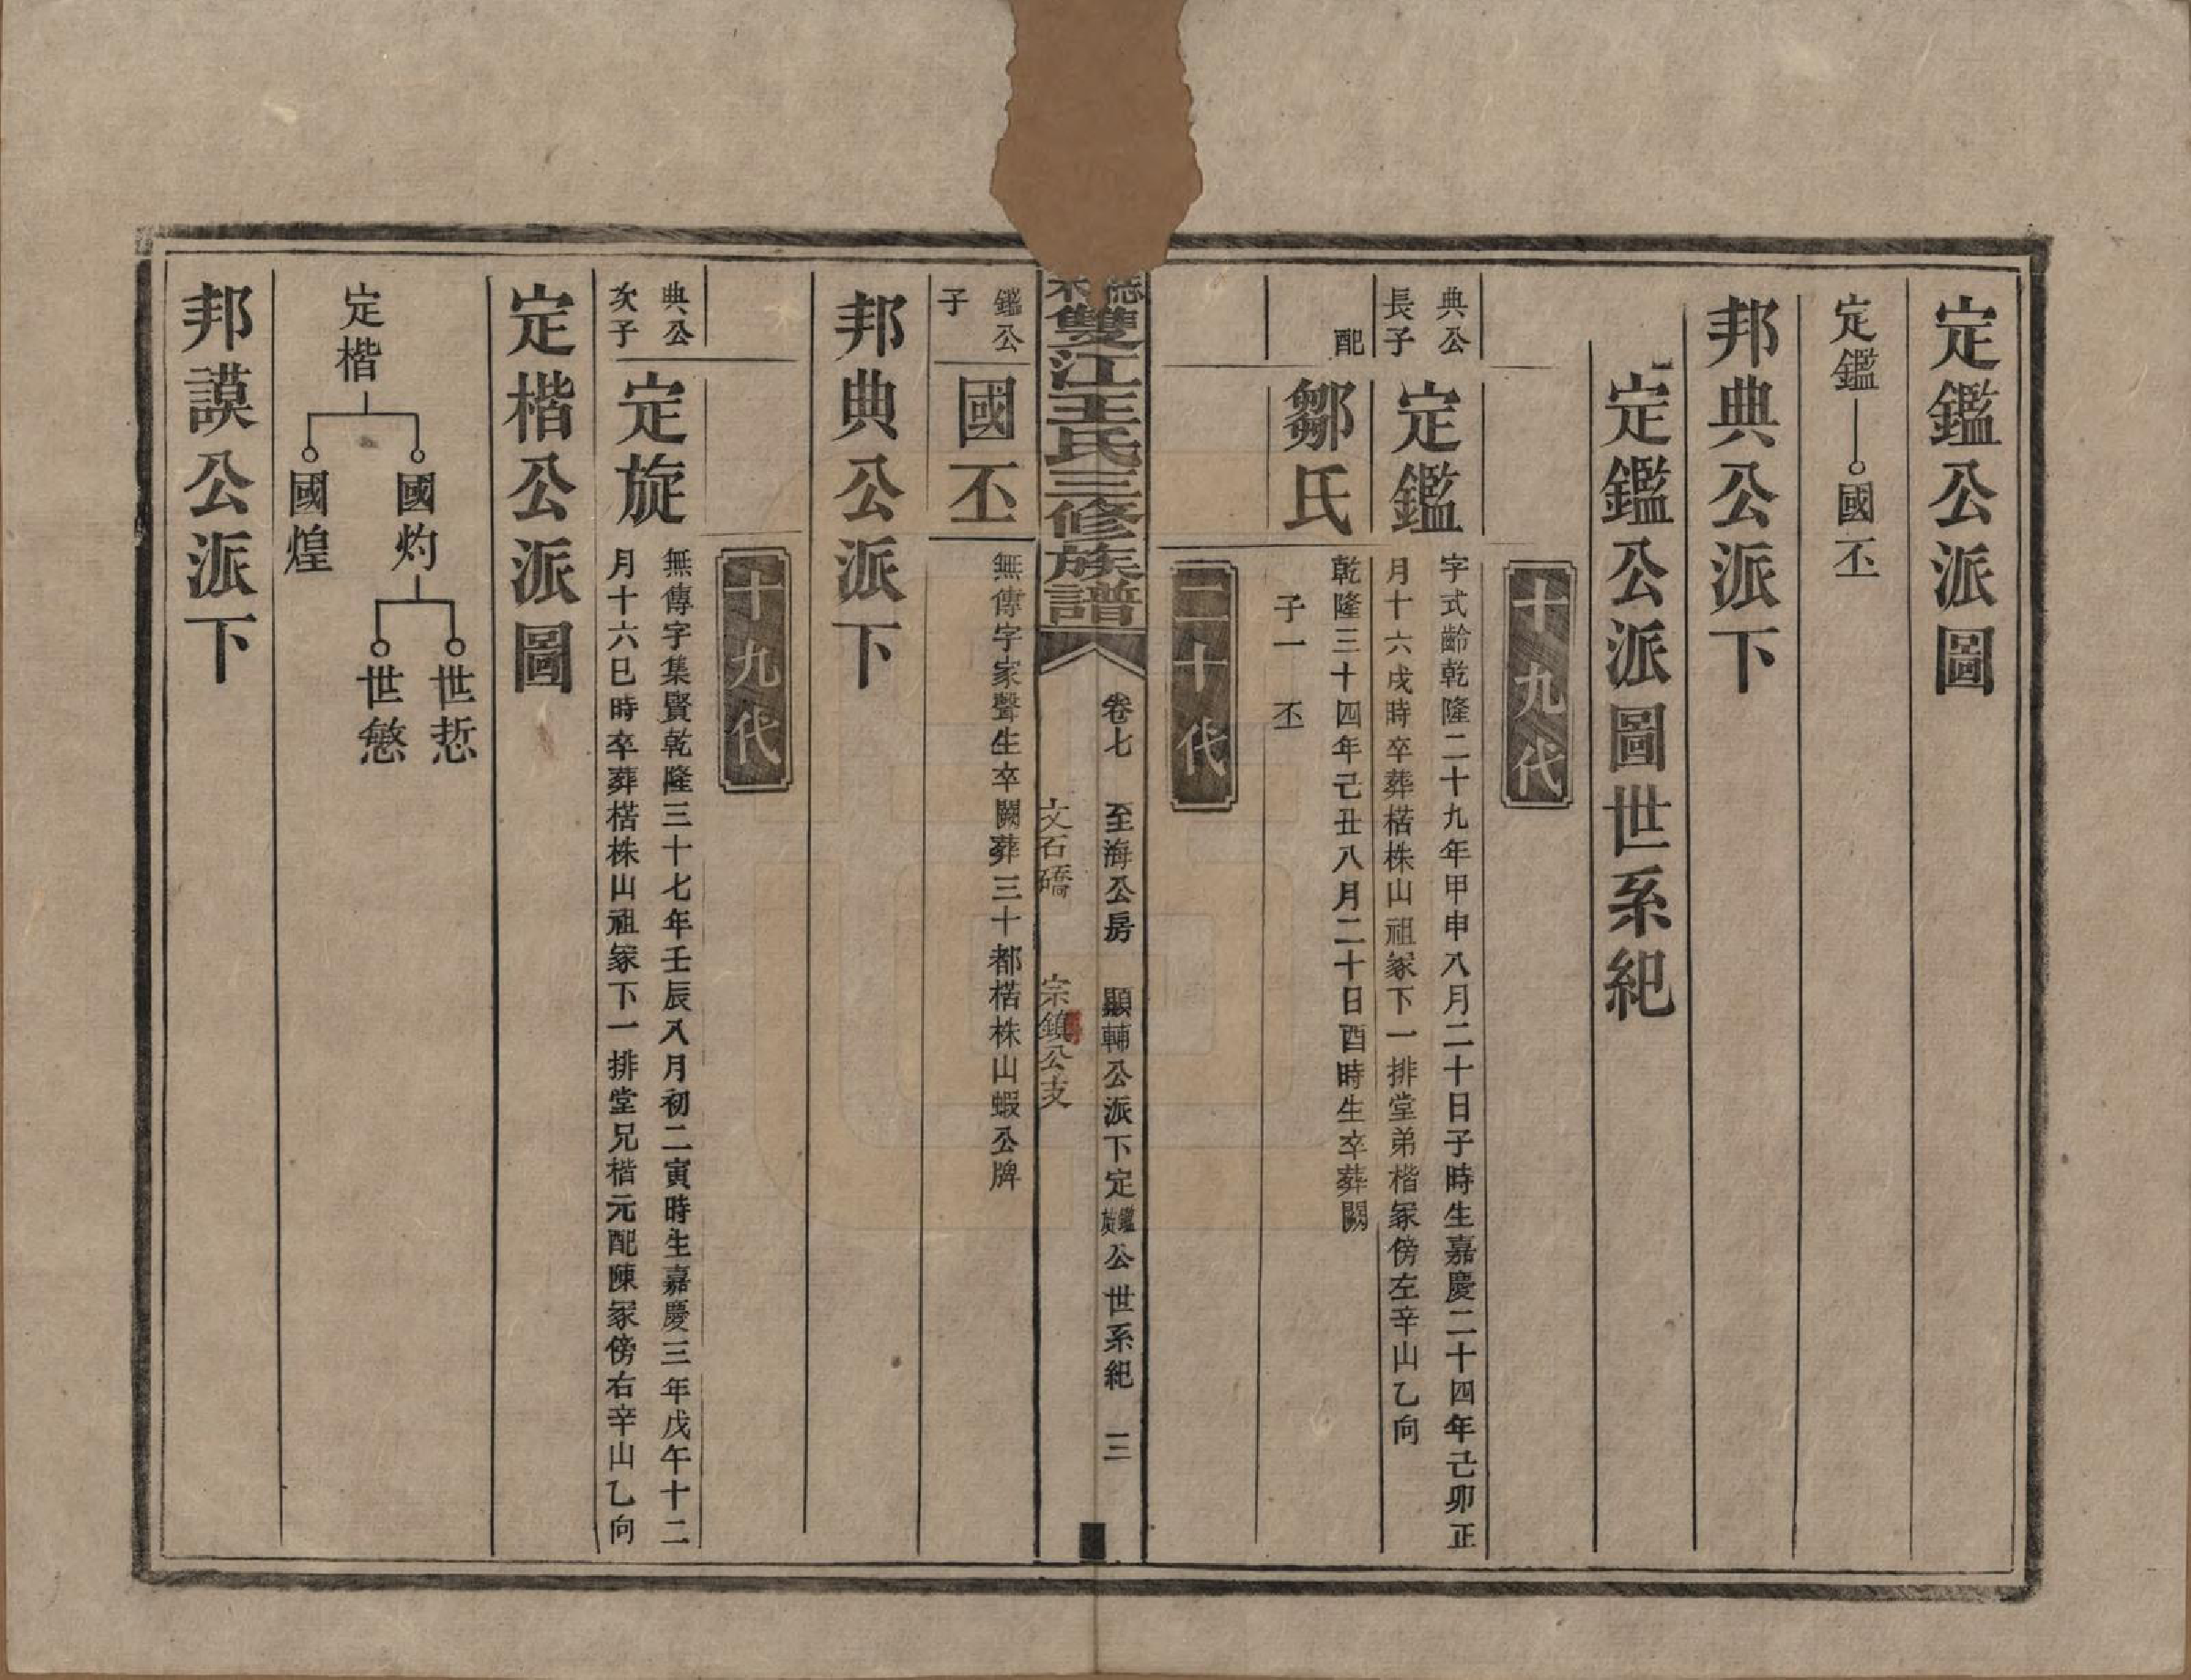 定鑑公派圖
定鑑 國丕
邦典公派下
定鑑公派圖世系紀
十九代
典公長子
定鑑
字式齡乾隆二十九年甲申八月二十日子時生嘉慶二十四年己卯正
月十六戌時卒葬楛株山祖冢下一排堂弟楷冢傍左辛山乙向
配
鄒氏
乾隆三十四年己丑八月二十日酉時生卒葬闕
子一 丕
二十代
雙江王氏三修族譜
卷七 至海公房 顯輔公派下定鑑旋公世系紀 三
文石礄 宗鎮公支
鑑公子
國丕
無傳字家聲生卒闕葬三十都楛株山蝦公牌
邦典公派下
十九代
典公次子
定旋
無傳字集賢乾隆三十七年壬辰八月初二寅時生嘉慶三年戊午十二
月十六巳時卒葬楛株山祖冢下一排堂兄楷元配陳冢傍右辛山乙向
定楷公派圖
定楷
國灼
國煌
世悊
世慜
邦謨公派下